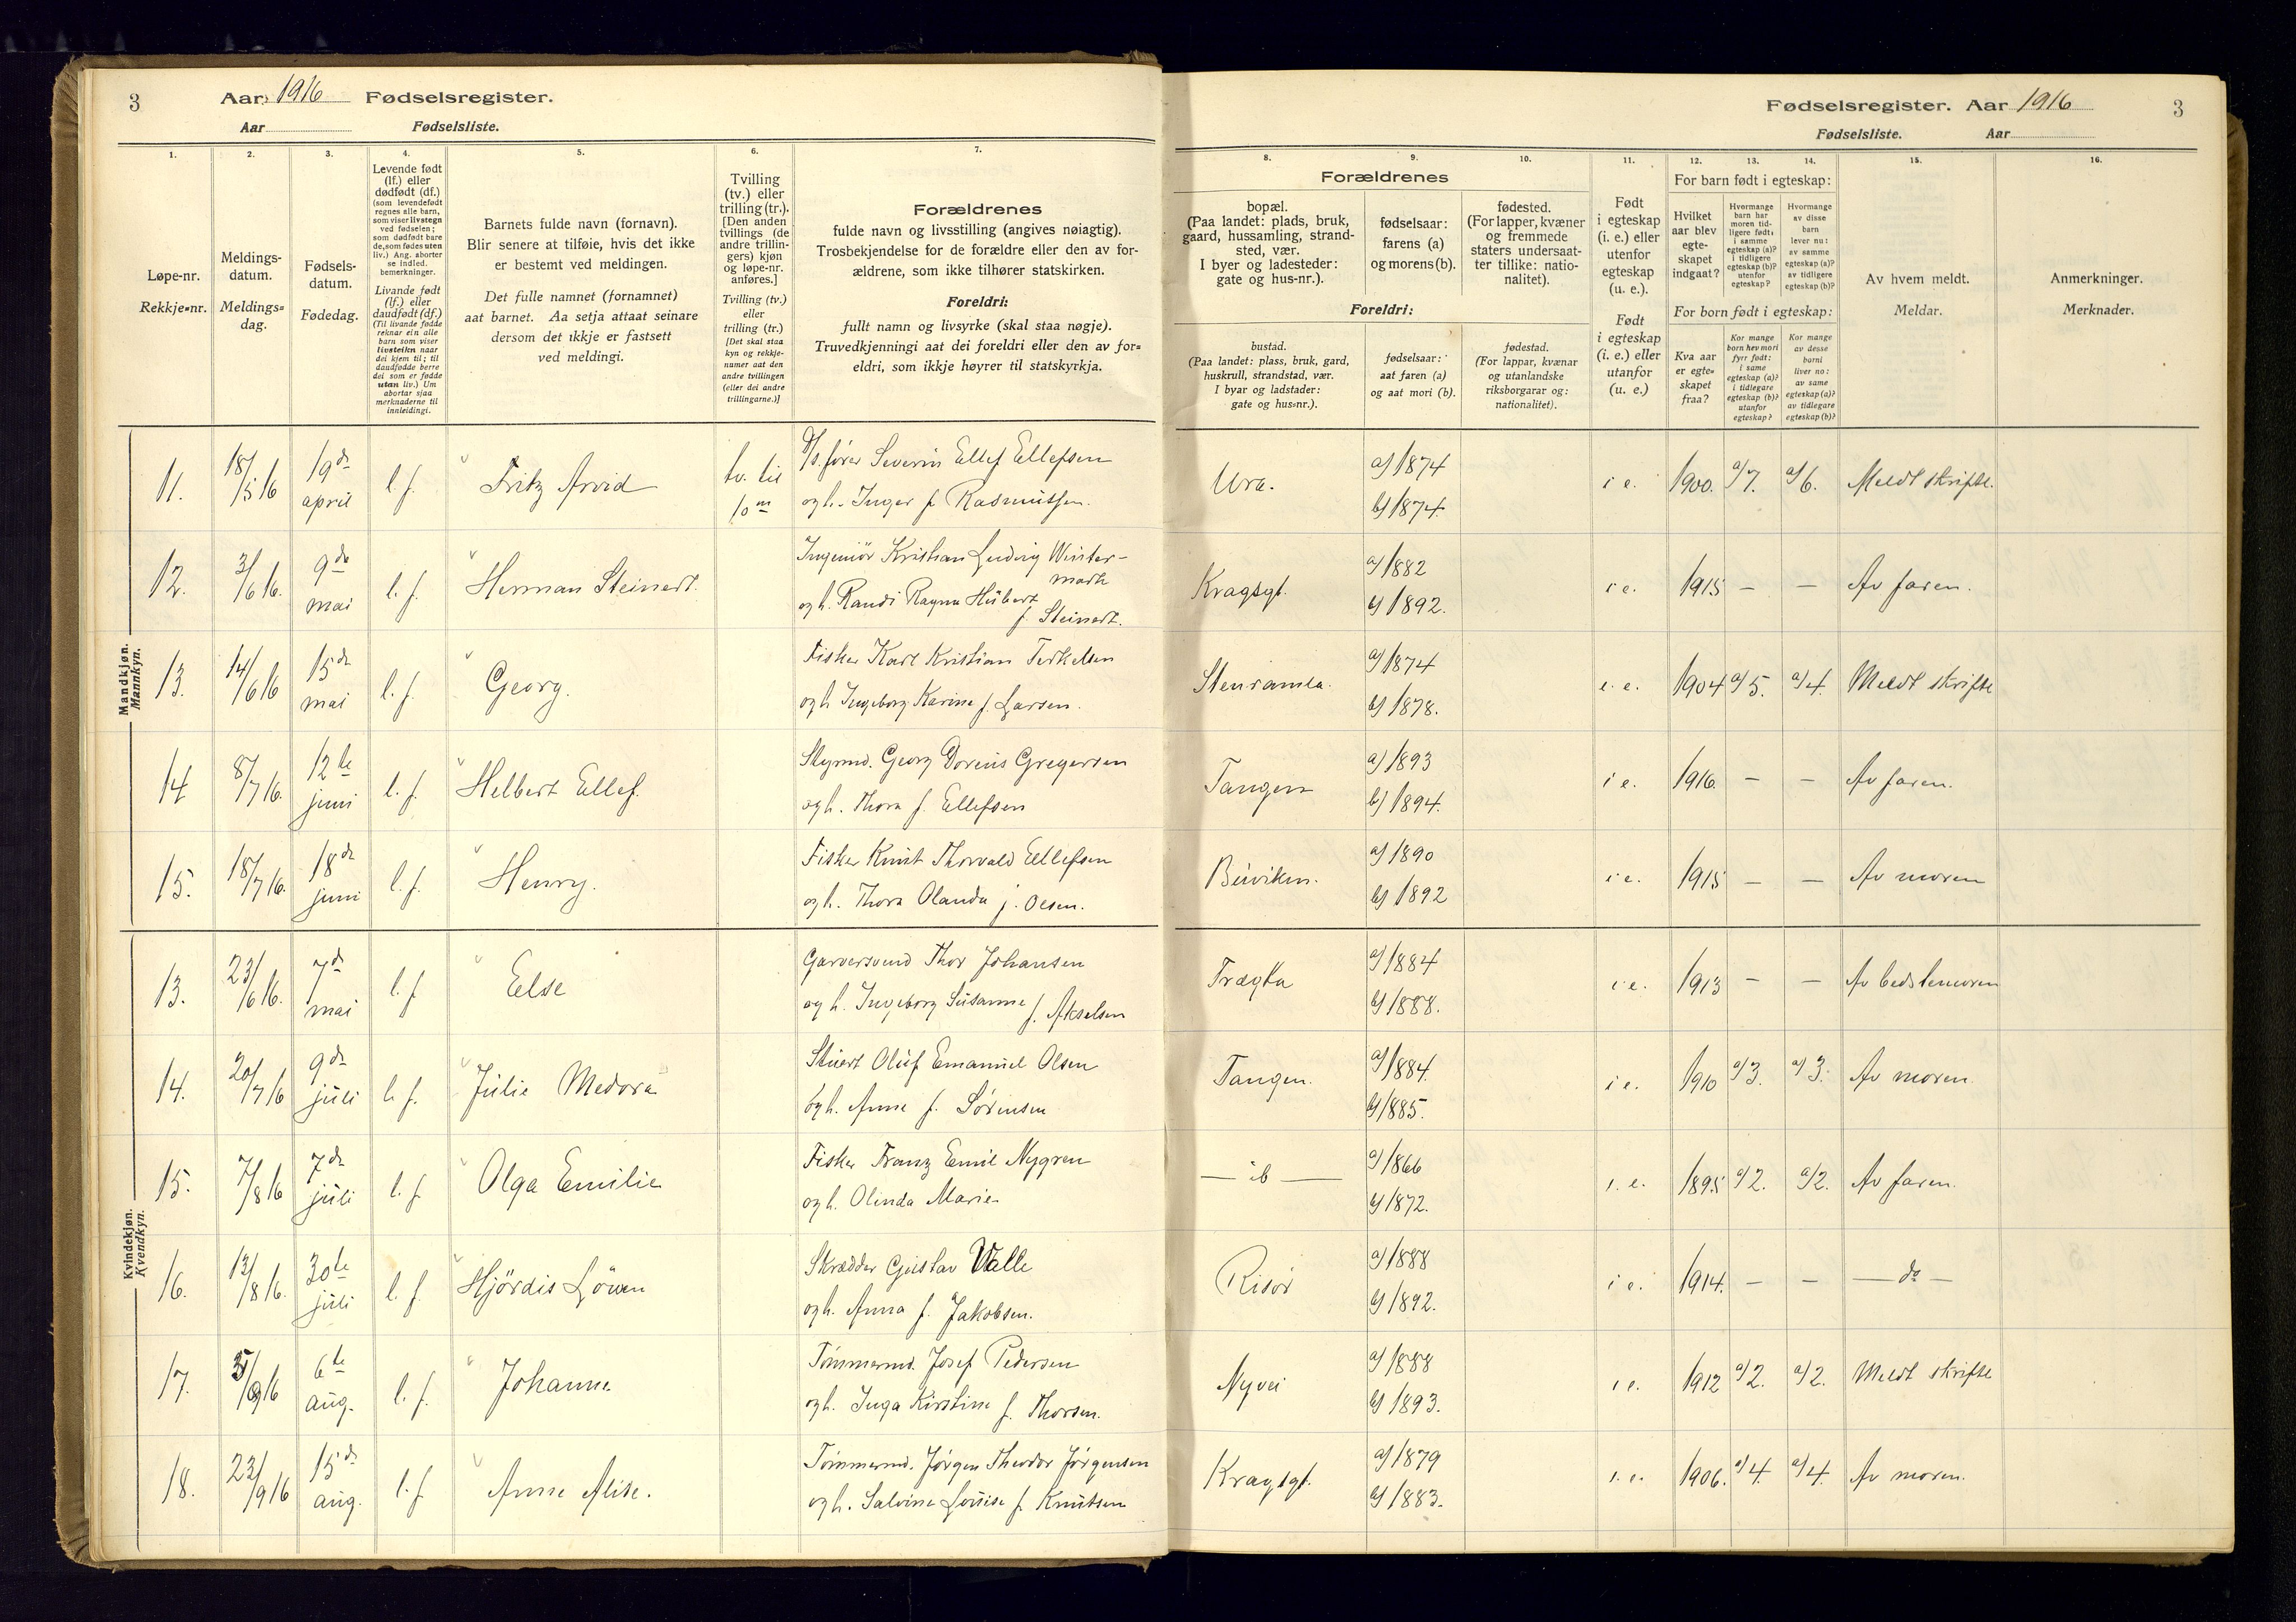 3
Aar 1916 Fødselsregister.
Aar Fødselsliste.
1.
Løpe-nr.
Rekkje-nr.
2.
Meldings-
datum.
Meldings-
dag.
3.
Fødsels-
datum.
Fødedag.
4.
Levende født
(lf.) eller
dødfødt (df.)
(som levendefødt
regnes alle barn,
som viser livstegn
ved fødselen;
som dødfødt bare
de, som fødes uten
liv.) Ang. aborter
se indled.
bemerkninger.
Livande født
(lf.) eller
daudfødt (df.)
(Til livande fødde
reknar ein alle
barn som viser
livsteikn naar
dei kjem til; til
daudfødde berre
dei som er fødde
utan liv.) Um
abortar sjaa
merknaderne til
innleidingi.
5.
Barnets fulde navn (fornavn).
Blir senere at tilføie, hvis det ikke
er bestemt ved meldingen.
Det fulle namnet (fornamnet)
aat barnet. Aa setja attaat seinare
dersom det ikkje er fastsett
ved meldingi.
6.
Tvilling
(tv.) eller
trilling (tr.).
[Den anden
tvillings (de
andre trillin-
gers) kjøn
og løpe-nr.
anføres.]
Tvilling (tv.)
eller
trilling (tr.)
[Det skal staa
kyn og rekkje-
numer aat den
andre tvillingen
(eller dei andre
trillingarne.)]
7.
Forældrenes
fulde navn og livsstilling (angives nøiagtig).
Trosbekjendelse for de forældre eller den av for-
ældrene, som ikke tilhører statskirken.
Foreldri:
fullt namn og livsyrke (skal staa nøgje).
Truvedkjenningi aat dei foreldri eller den av for-
eldri, som ikkje høyrer til statskyrkja.
Fødselsregister. Aar 1916 3
Fødselsliste. Aar
Forældrenes
8.
bopæl.
(Paa landet: plads, bruk,
gaard, hussamling, strand-
sted, vær.
I byer og ladesteder:
gate og hus-nr.).
9.
fødselsaar:
farens (a)
og morens (b).
10.
fødested.
(For lapper, kvæner
og fremmede
staters undersaat-
ter tillike: natio-
nalitet).
Foreldri:
bustad.
(Paa landet: plass, bruk, gard,
huskrull, strandstad, vær.
I byar og ladstader:
gate og hus-nr.).
fødselsaar:
aat faren (a)
og aat mori (b).
fødestad.
(For lappar, kvænar
og utanlandske
riksborgarar og:
nationalitet).
11.
Født
i egteskap
(i. e.) eller
utenfor
egteskap
(u. e.).
Født
i egteskap
(i. e.) eller
utanfor
(u. e.)
12. 13. 14.
For barn født i egteskap:
Hvilket
aar blev
egte-
skapet
indgaat?
Hvormange
barn har
moren tid-
ligere født:
i samme
egteskap (a)?
i tidligere
egteskap (b)?
utenfor
egteskap?
Hvormange
av disse
barn
lever nu:
av samme
egteskap (a)?
av tidligere
egteskap (b)?
For born født i egteskap:
Kva aar
er egte-
skapet
fraa?
Kor mange
born hev mori
fyrr født:
i same
egteskap (a)?
i tidlegare
egteskap (b)?
utanfor
egteskap?
Kor mange
av desse
borni
liver no:
av same
egteskap (a)?
av tidlegare
egteskap (b)?
15.
Av hvem meldt.
Meldar.
16.
Anmerkninger.
Merknader.
Mandkjøn.
Mannkyn.
11. 18/5 16 19de april l. f. Fritz Arvid tv. til 10m S/s. fører Severin Ellef Ellefsen
og h. Inger f. Rasmussen. Ura. a) 1874 b) 1874. i e. 1900. a) 7. a) 6. Meldt skriftl.
12. 3/6 16. 9de mai l. f. Herman Steinert. Ingeniør Kristian Ludvig Winter-
mark
og h. Randi Ragna Hübert
f. Steinert. Kragsgt. a) 1882 b) 1892. i e. 1915 — — Av faren.
13. 14/6 16 15de mai l. f. Georg. Fisker Karl Kristian Terkelsen
og h. Ingeborg Karine f. Larsen. Stenramla. a) 1874 b) 1878. i. e. 1904 a) 5. a) 4. Meldt skriftl
14 8/7 16. 12te juni l. f. Helbert Ellef. Styrmd. Georg Dorenis Gregersen
og h. Thora f. Ellefsen Tangen a) 1893 b) 1894. i e. 1916. — — Av faren.
15. 18/7 16. 18de juni l. f. Henry. Fisker Knut Thorvald Ellefsen
og h. Thora Olanda f. Olsen. Buviken. a) 1890 b) 1892 i e. 1915 — — Av moren
Kvindekjøn.
Kvendkyn.
13. 23/6 16. 7de mai l. f Else Garversvend Thor Johansen
og h. Ingeborg Susanne f. Akselsen Trægta a) 1884 b) 1888. i e. 1913 — — Av bedstemoren
14. 20/7 16 9de juli l. f. Julie Medora Stuert Oluf Emanuel Olsen
og h. Anne f. Sørensen Tangen. a) 1884. b) 1885. i e. 1910 a) 3. a) 3. Av moren.
15. 7/8 16 7de juli l. f. Olga Emilie Fisker Franz Emil Nygren
og h. Olinda Marie — ib — a) 1866 b) 1872. i. e. 1895 a) 2. a) 2. Av faren.
16. 13/8 16. 30te juli l. f. Hjördis Löven Skrædder Gustav Valle
og h. Anna f. Jakobsen. Risør a) 1888 b) 1892. i e. 1914. — — — do —
17. 5/9 16 6te aug. l. f. Johanne Tømmermd. Josef Pedersen
og h. Inga Kirstine f. Thorsen. Nyvei a) 1888 b) 1893. i e. 1912 a) 2. a) 2. Meldt skriftl
18. 23/9 16 15de aug. l. f Anne Alise. Tømmermd. Jørgen Theodor Jørgensen
og h. Salvine Lovise f. Knutsen Kragsgt. a) 1879 b) 1883. i. e. 1906. a) 4. a) 4. Av moren.